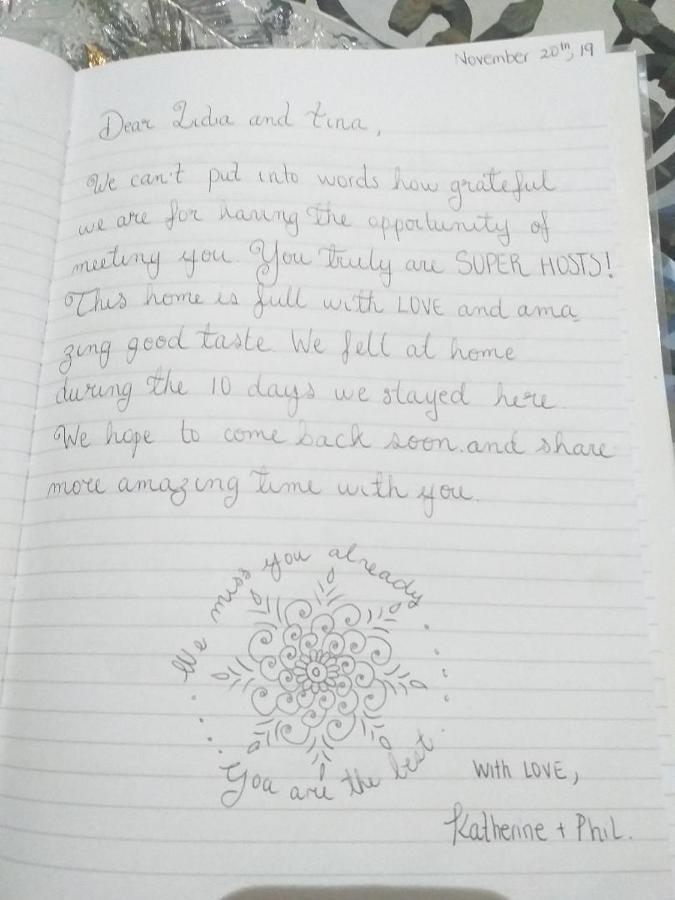 November 20th, 19
Dear Lidia and Tina,
We can't put into words how grateful
we are for having the opportunity of
meeting you. You truly are SUPER HOSTS!
This home is full with LOVE and ama_
zing good taste. We fell at home
during the 10 days we stayed here.
We hope to come back soon. and share
more amazing time with you.
We miss you already
You are the best
With LOVE,
Katherine + Phil.